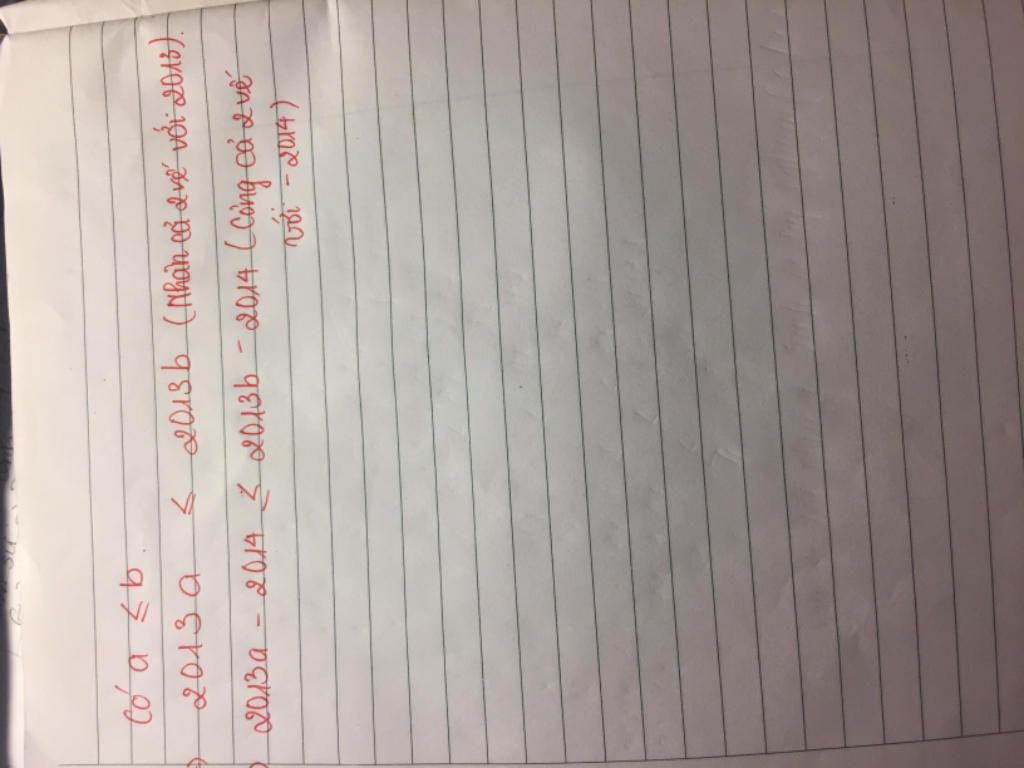 Có a ≤ b.
2013a ≤ 2013b (Nhân cả 2 vế với 2013).
2013a - 2014 ≤ 2013b - 2014 (Cộng cả 2 vế
với - 2014)